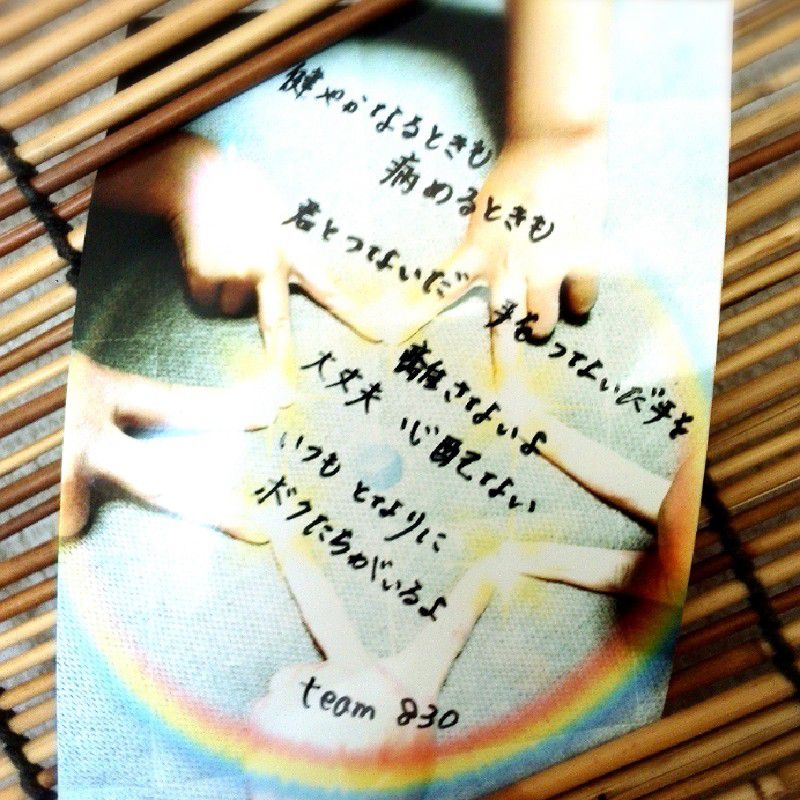 健やかなるときも
病めるときも
君とつないだ 手をつないだ手を
離さないよ
大丈夫 心配ない
いつも となりに
ボクたちがいるよ
team 830